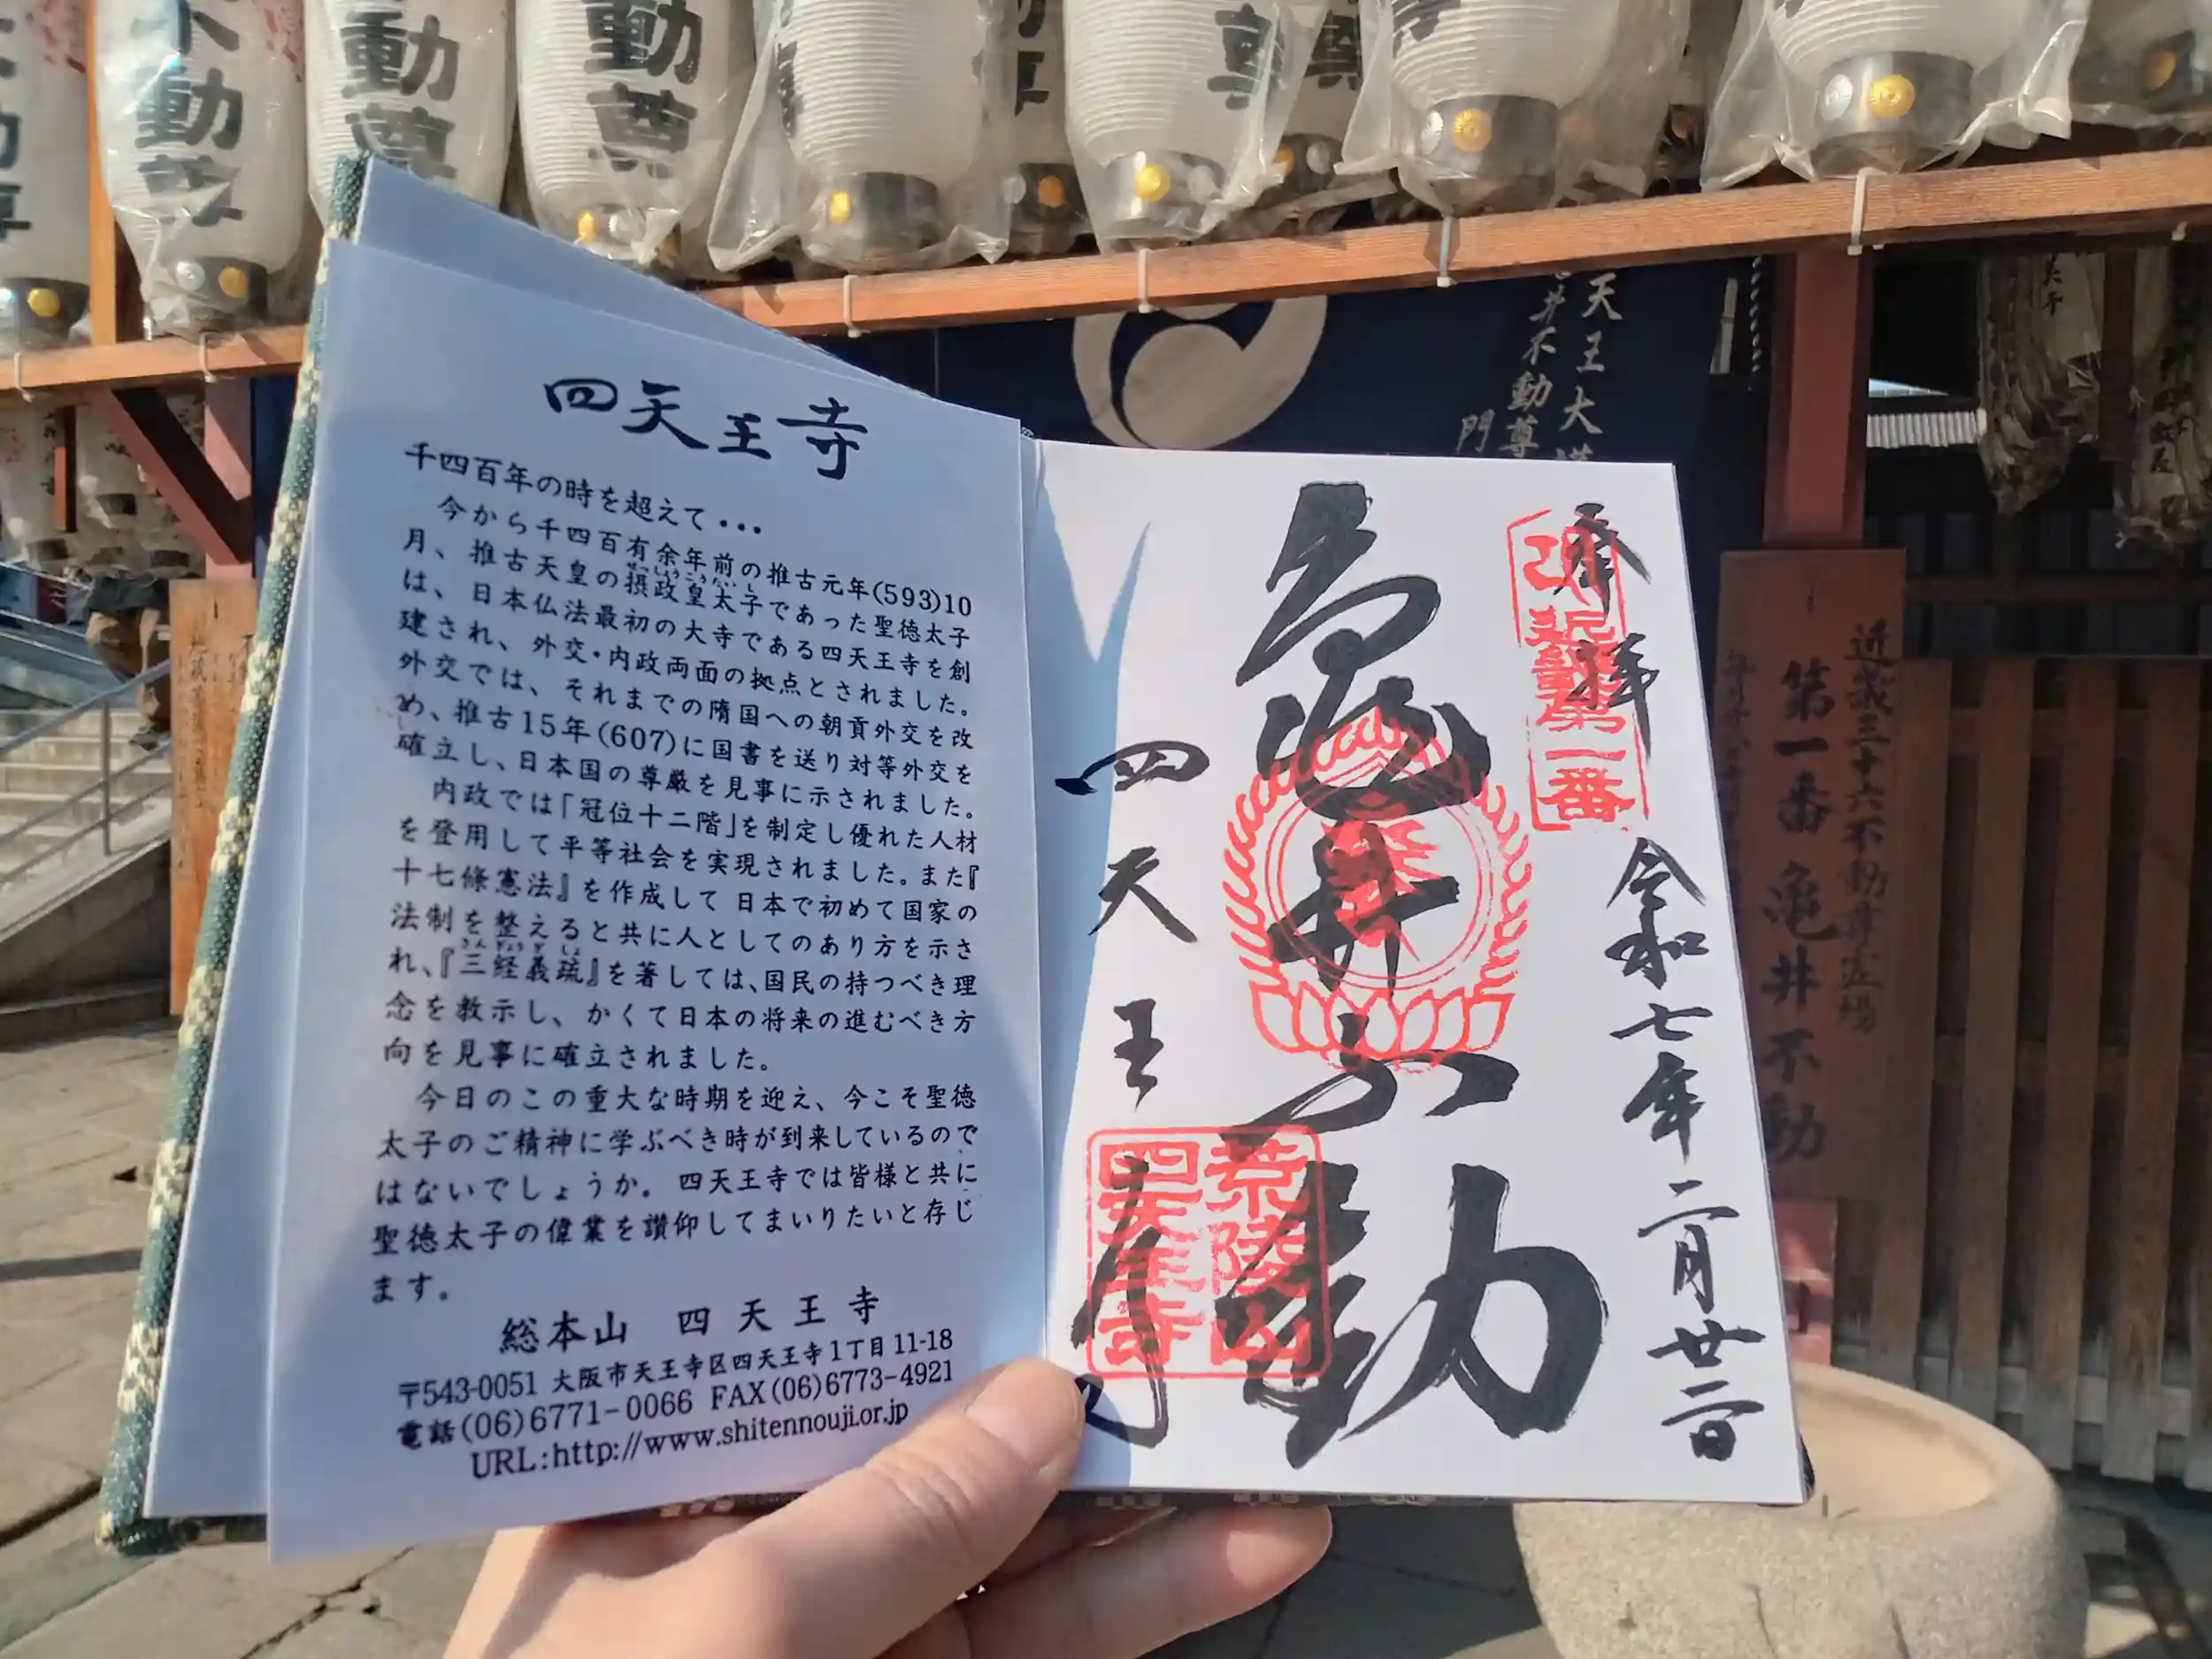 不動尊
動尊
動尊
尊
天王大
井不動尊
門
四天王寺
千四百年の時を超えて・・・
今から千四百有余年前の推古元年(593)10
月、推古天皇の摂政皇太子であった聖徳太子
せっしょうこうたいし
は、日本仏法最初の大寺である四天王寺を創
建され、外交・内政両面の拠点とされました。
外交では、それまでの隋国への朝貢外交を改
め、推古15年(607)に国書を送り対等外交を
確立し、日本国の尊厳を見事に示されました。
内政では「冠位十二階」を制定し優れた人材
を登用して平等社会を実現されました。また『
十七條憲法』を作成して日本で初めて国家の
法制を整えると共に人としてのあり方を示さ
さんぎょうぎしょ
れ、『三経義疏』を著しては、国民の持つべき理
念を教示し、かくて日本の将来の進むべき方
向を見事に確立されました。
今日のこの重大な時期を迎え、今こそ聖徳
太子のご精神に学ぶべき時が到来しているので
はないでしょうか。四天王寺では皆様と共に
聖徳太子の偉業を讃仰してまいりたいと存じ
ます。
総本山 四天王寺
〒543-0051 大阪市天王寺区四天王寺1丁目11-18
電話(06)6771-0066 FAX(06)6773-4921
URL:http://www.shitennouji.or.jp
奉拝
令和七年二月廿二日
亀井不動
四天王寺
第一番
荒陵山
四天王寺
近畿三十六不動尊霊場
第一番 亀井不動